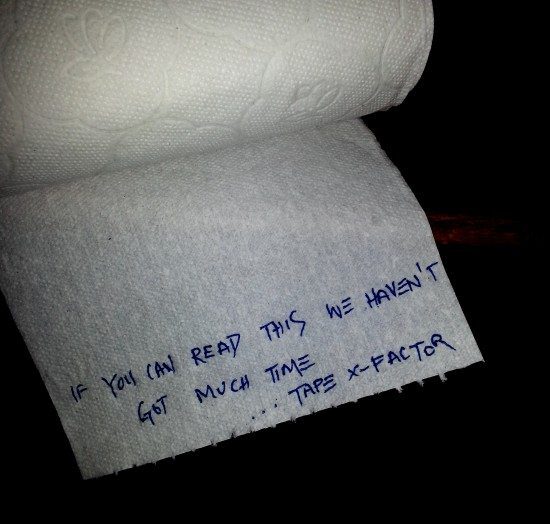 IF YOU CAN READ THIS WE HAVEN'T
GOT MUCH TIME
... TAPE X-FACTOR